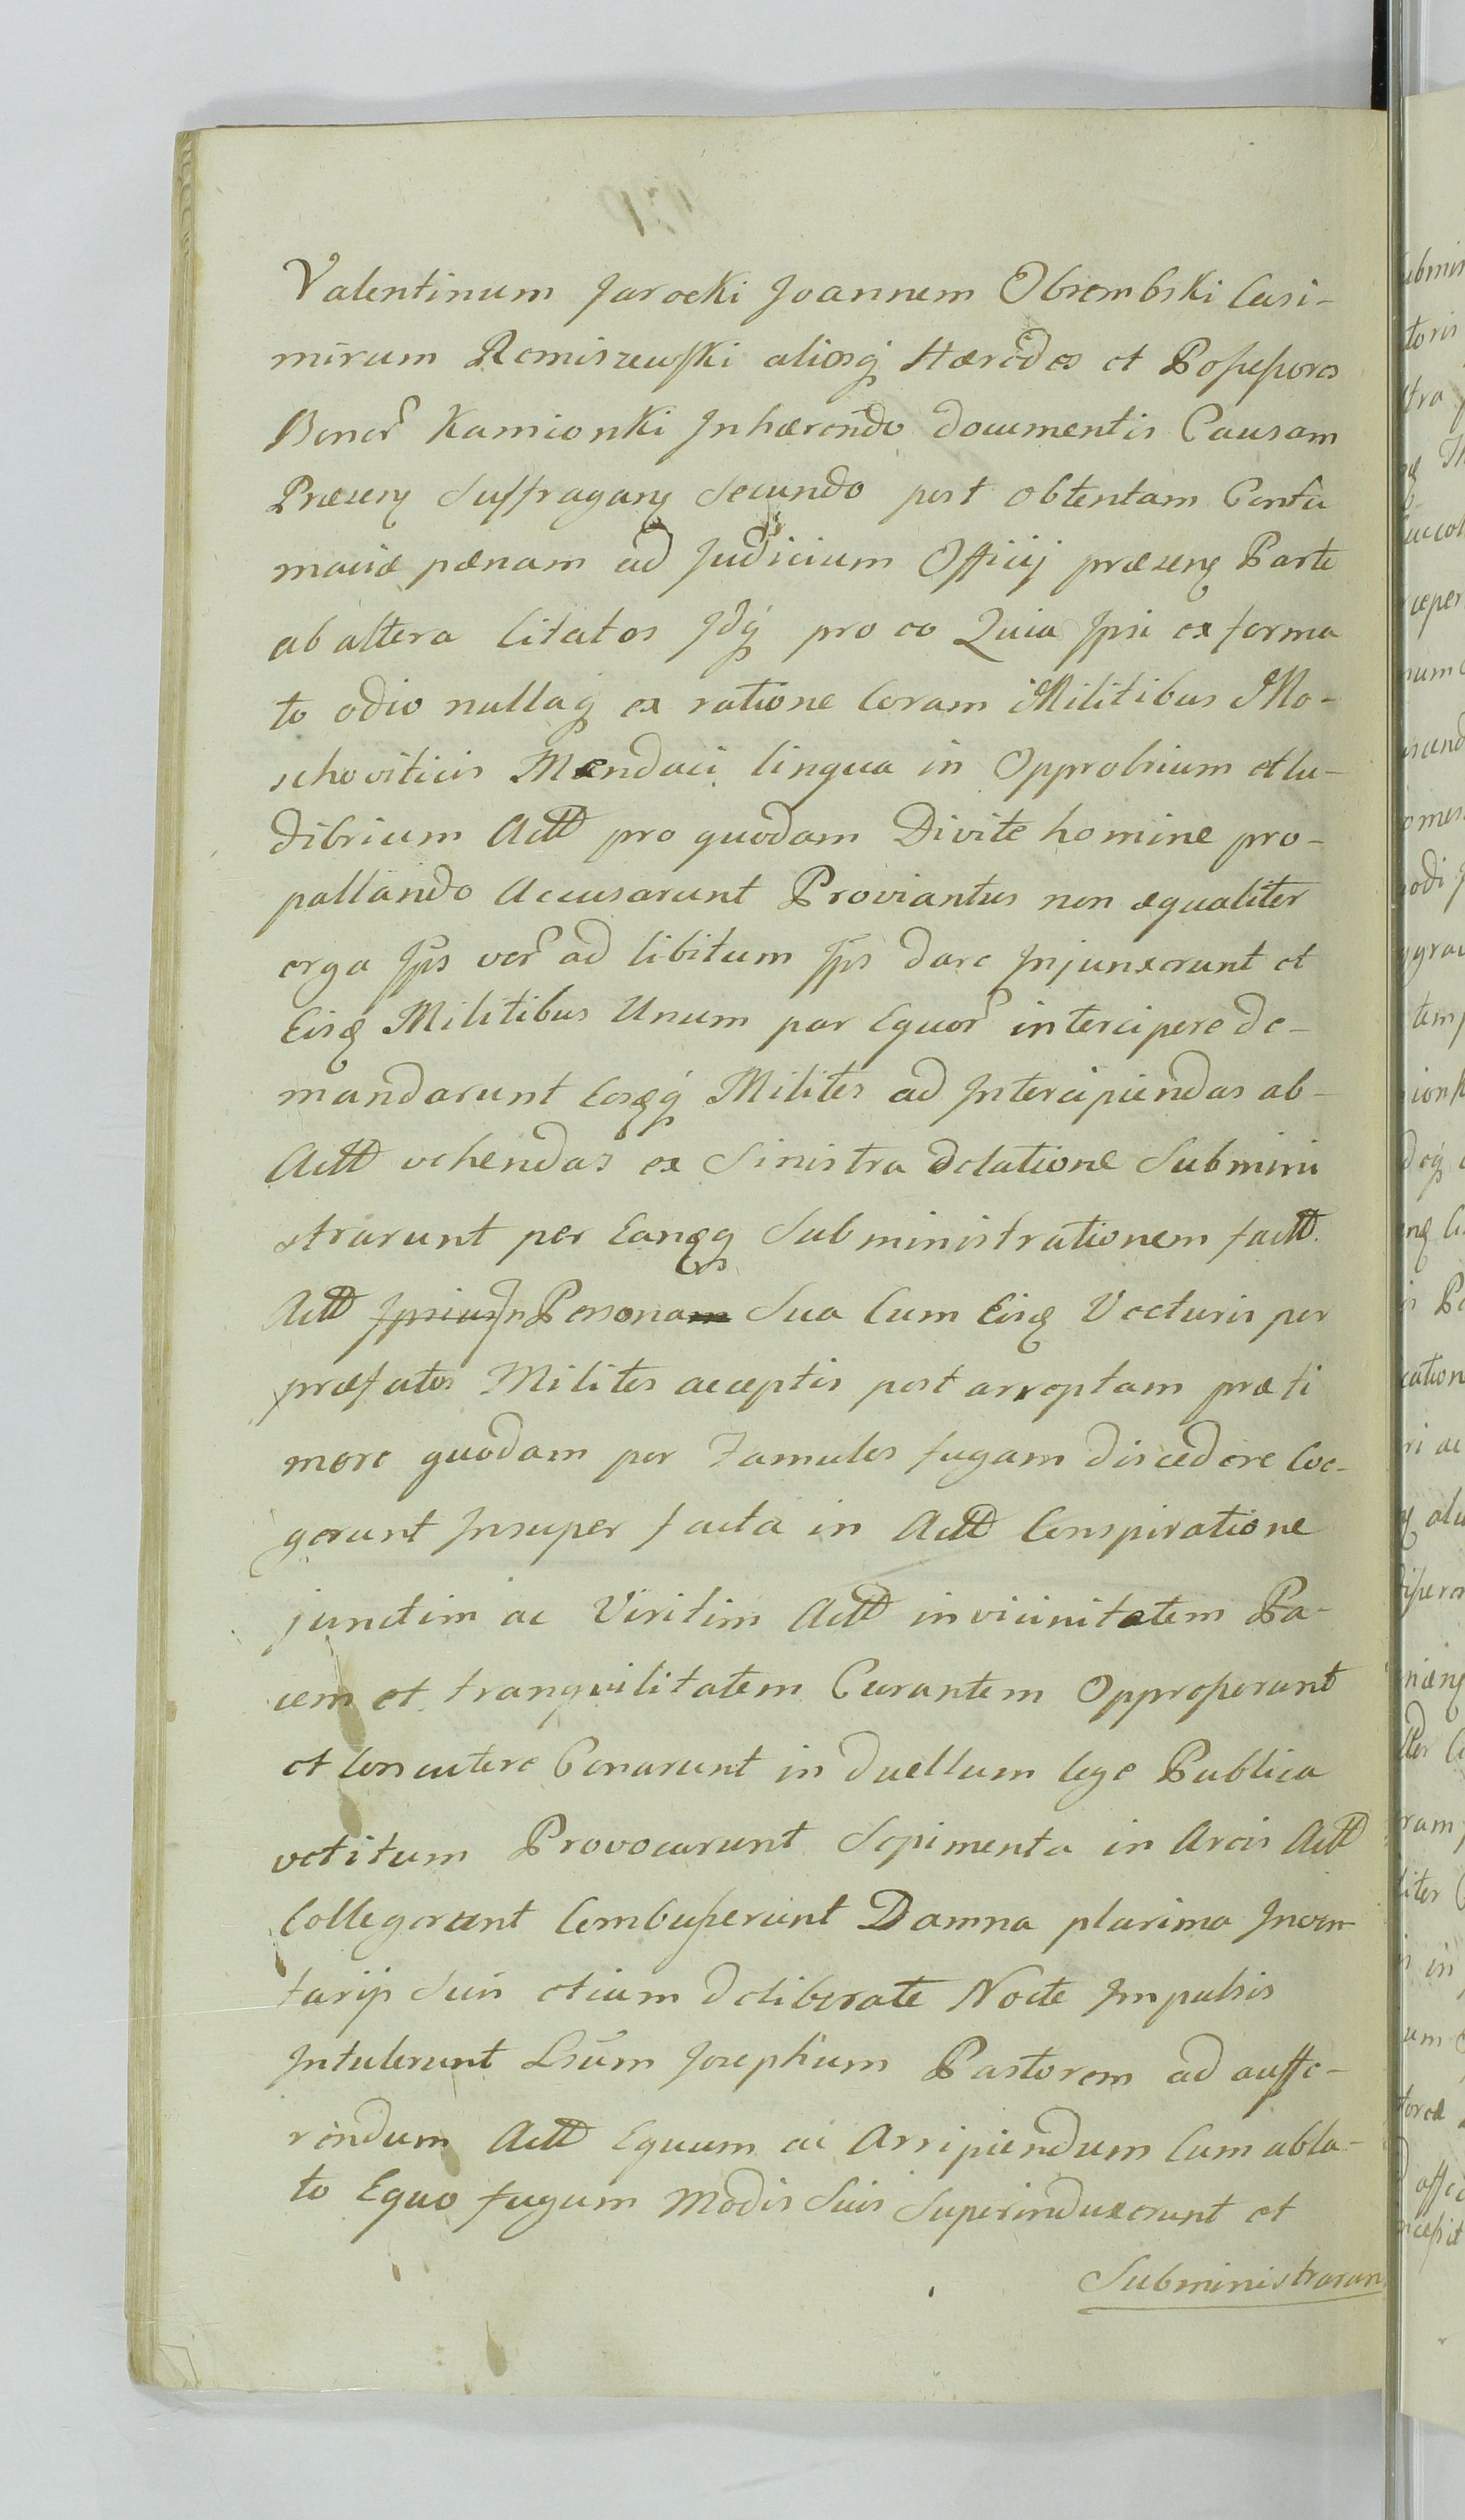 Valentinum Jarocki Joannem Obrembski Casi-
mirum Remiszewski aliosq Hæredes et Possessores
Bonor Kamionki Inhærendo documentis Causam
Præsen Suffragan Secundo post obtentam Contu
maciæ pænam ad Judicium Officij præsen Parte
ab altera Citatos Idq pro eo Quia Ipsi ex forma
to odio nullaq ex ratione Coram Militibus Mo-
schoviticis Mendaci lingua in Opprobrium et lu-
dibrium Act pro quodam Divite homine pro-
pallando Accusarunt Proviantus non æqualiter
erga Ips ver ad libitum Ips dare Injunxerunt et
Eisd Militibus Unum par Equor intercipere de-
mandarunt Eosdq Milites ad Intercipiendas ab-
Act vehendas ex Sinistra delatione Submini
strarunt per Eandq Subministrationem fact
Act Ipsius In Personam Sua Cum Eisd Vecturis per
præfatos Milites acceptis post arreptam præ ti
more quodam per Famulos fugam discedere Coe-
gerunt Insuper facta in Act Conspiratione
junctim ac Viritim Act in vicinitatem Pa-
cem et tranquilitatem Curantem Opproperunt
et Concutere Conarunt in duellum lege Publica
vetitum Provocarunt Sepimenta in Arcis Act
Collegerunt Combusserunt Damna plurima Inven-
tarijs Suis etiam deliberate Nocte Impulsis
Intulerunt Josephum Pastorem ad auffe-
rendum Act Equum ac Arripiendum Cum abla-
to Equo fugam Modis Suis Superinduxerunt et
Subministrarun